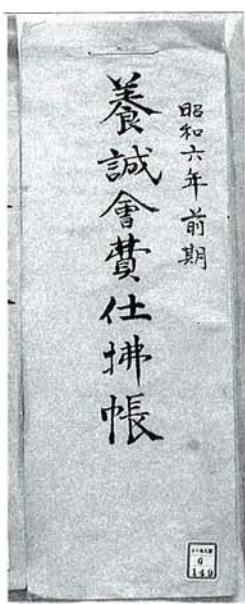 昭和六年前期
養誠會費仕拂帳
G
149